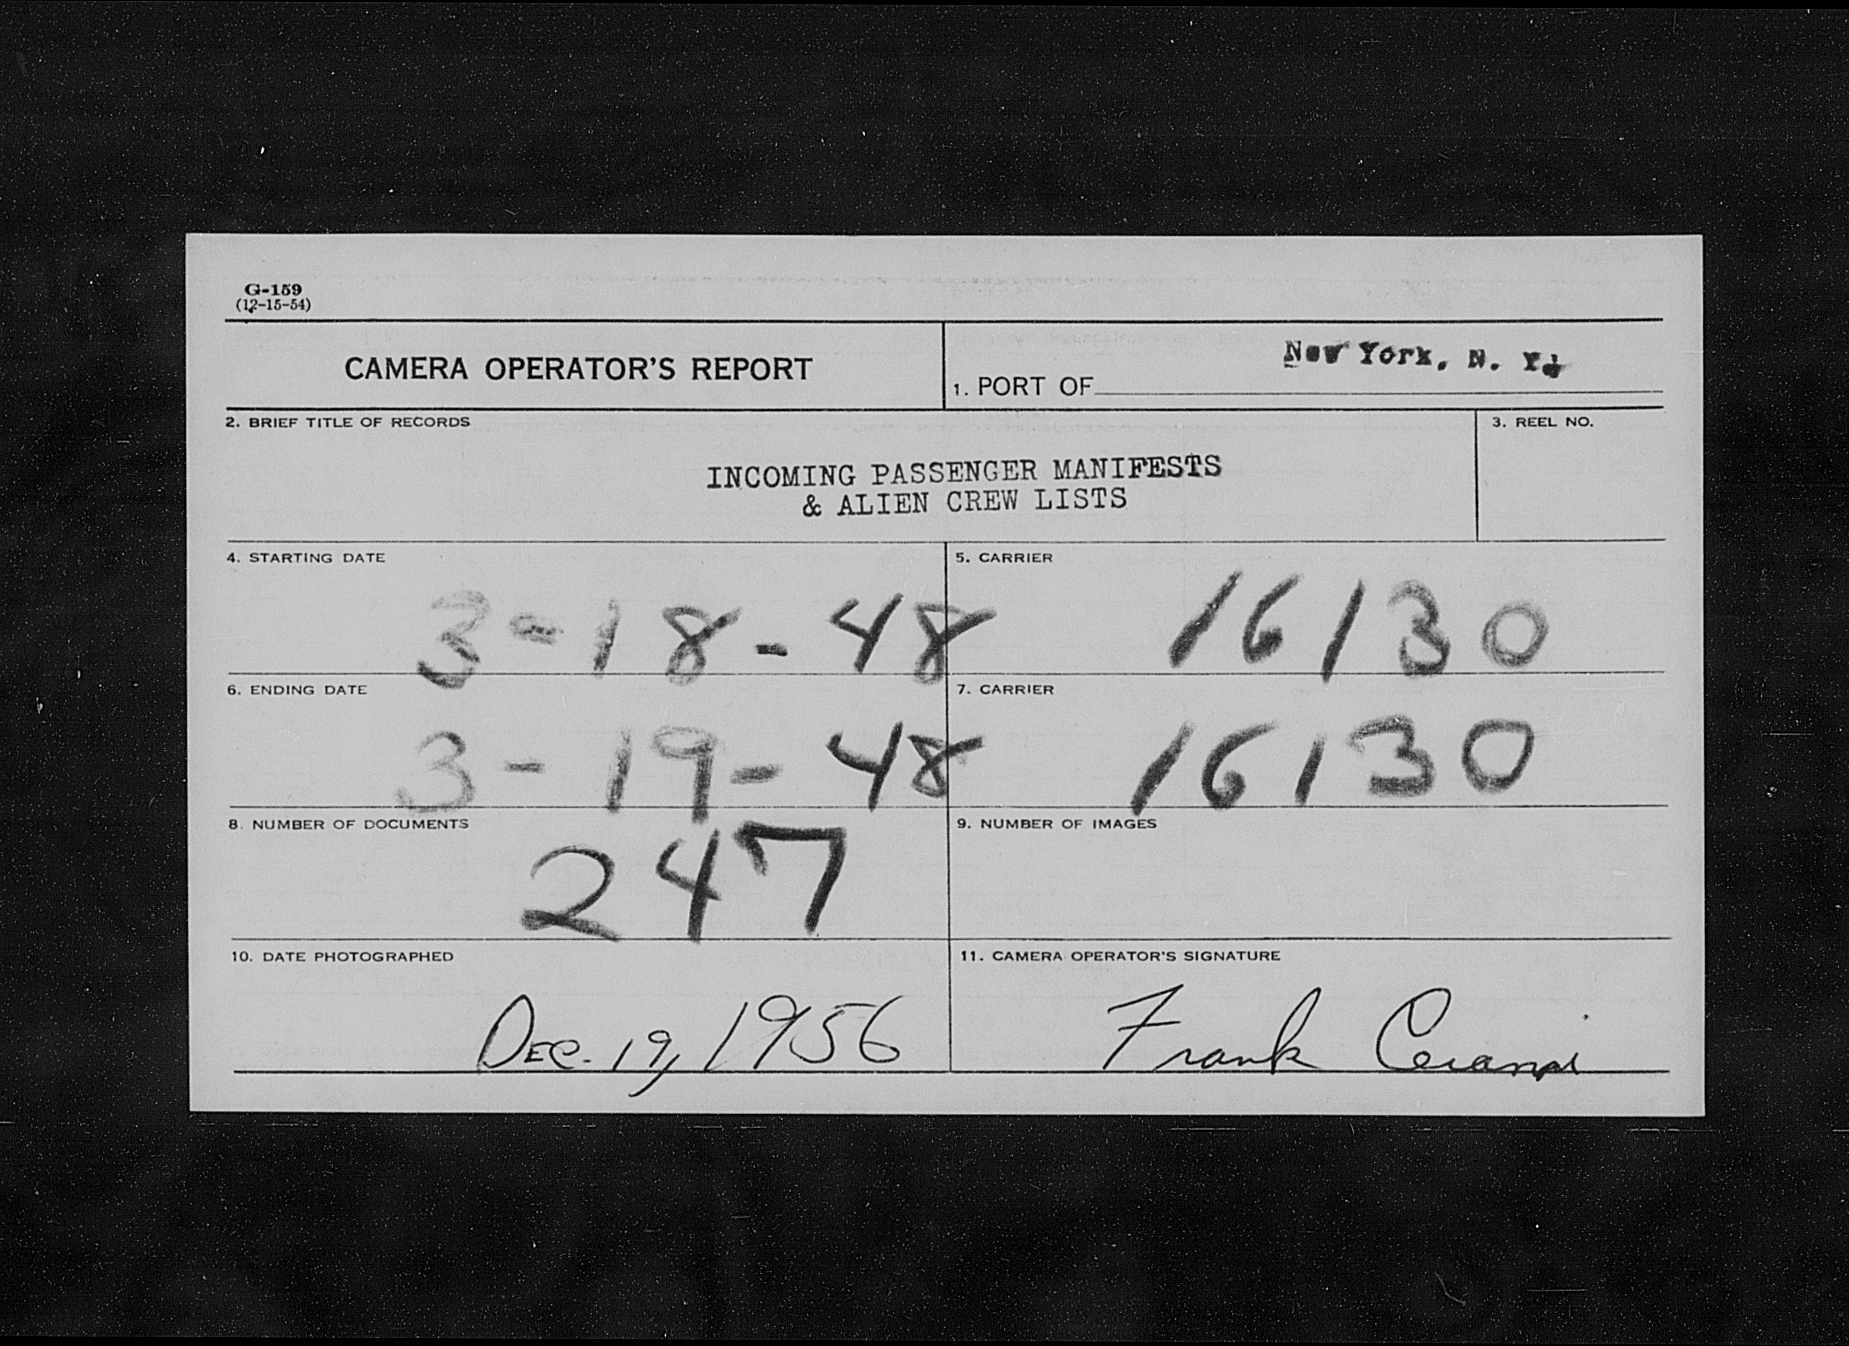 G-159
(12-15-54)
CAMERA OPERATOR'S REPORT
1. PORT OF New York, N. Y.
2. BRIEF TITLE OF RECORDS
3. REEL NO.
INCOMING PASSENGER MANIFESTS
& ALIEN CREW LISTS
4. STARTING DATE
3-18-48
5. CARRIER
16130
6. ENDING DATE
3-19-48
7. CARRIER
16130
8. NUMBER OF DOCUMENTS
247
9. NUMBER OF IMAGES
10. DATE PHOTOGRAPHED
Dec. 19, 1956
11. CAMERA OPERATOR'S SIGNATURE
Frank